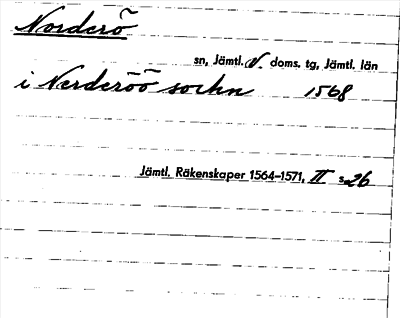 Norderö
sn, Jämtl. V. doms. tg, Jämtl. län
i Nerderöö sockn 1568
Jämtl. Räkenskaper 1564–1571, II s. 26